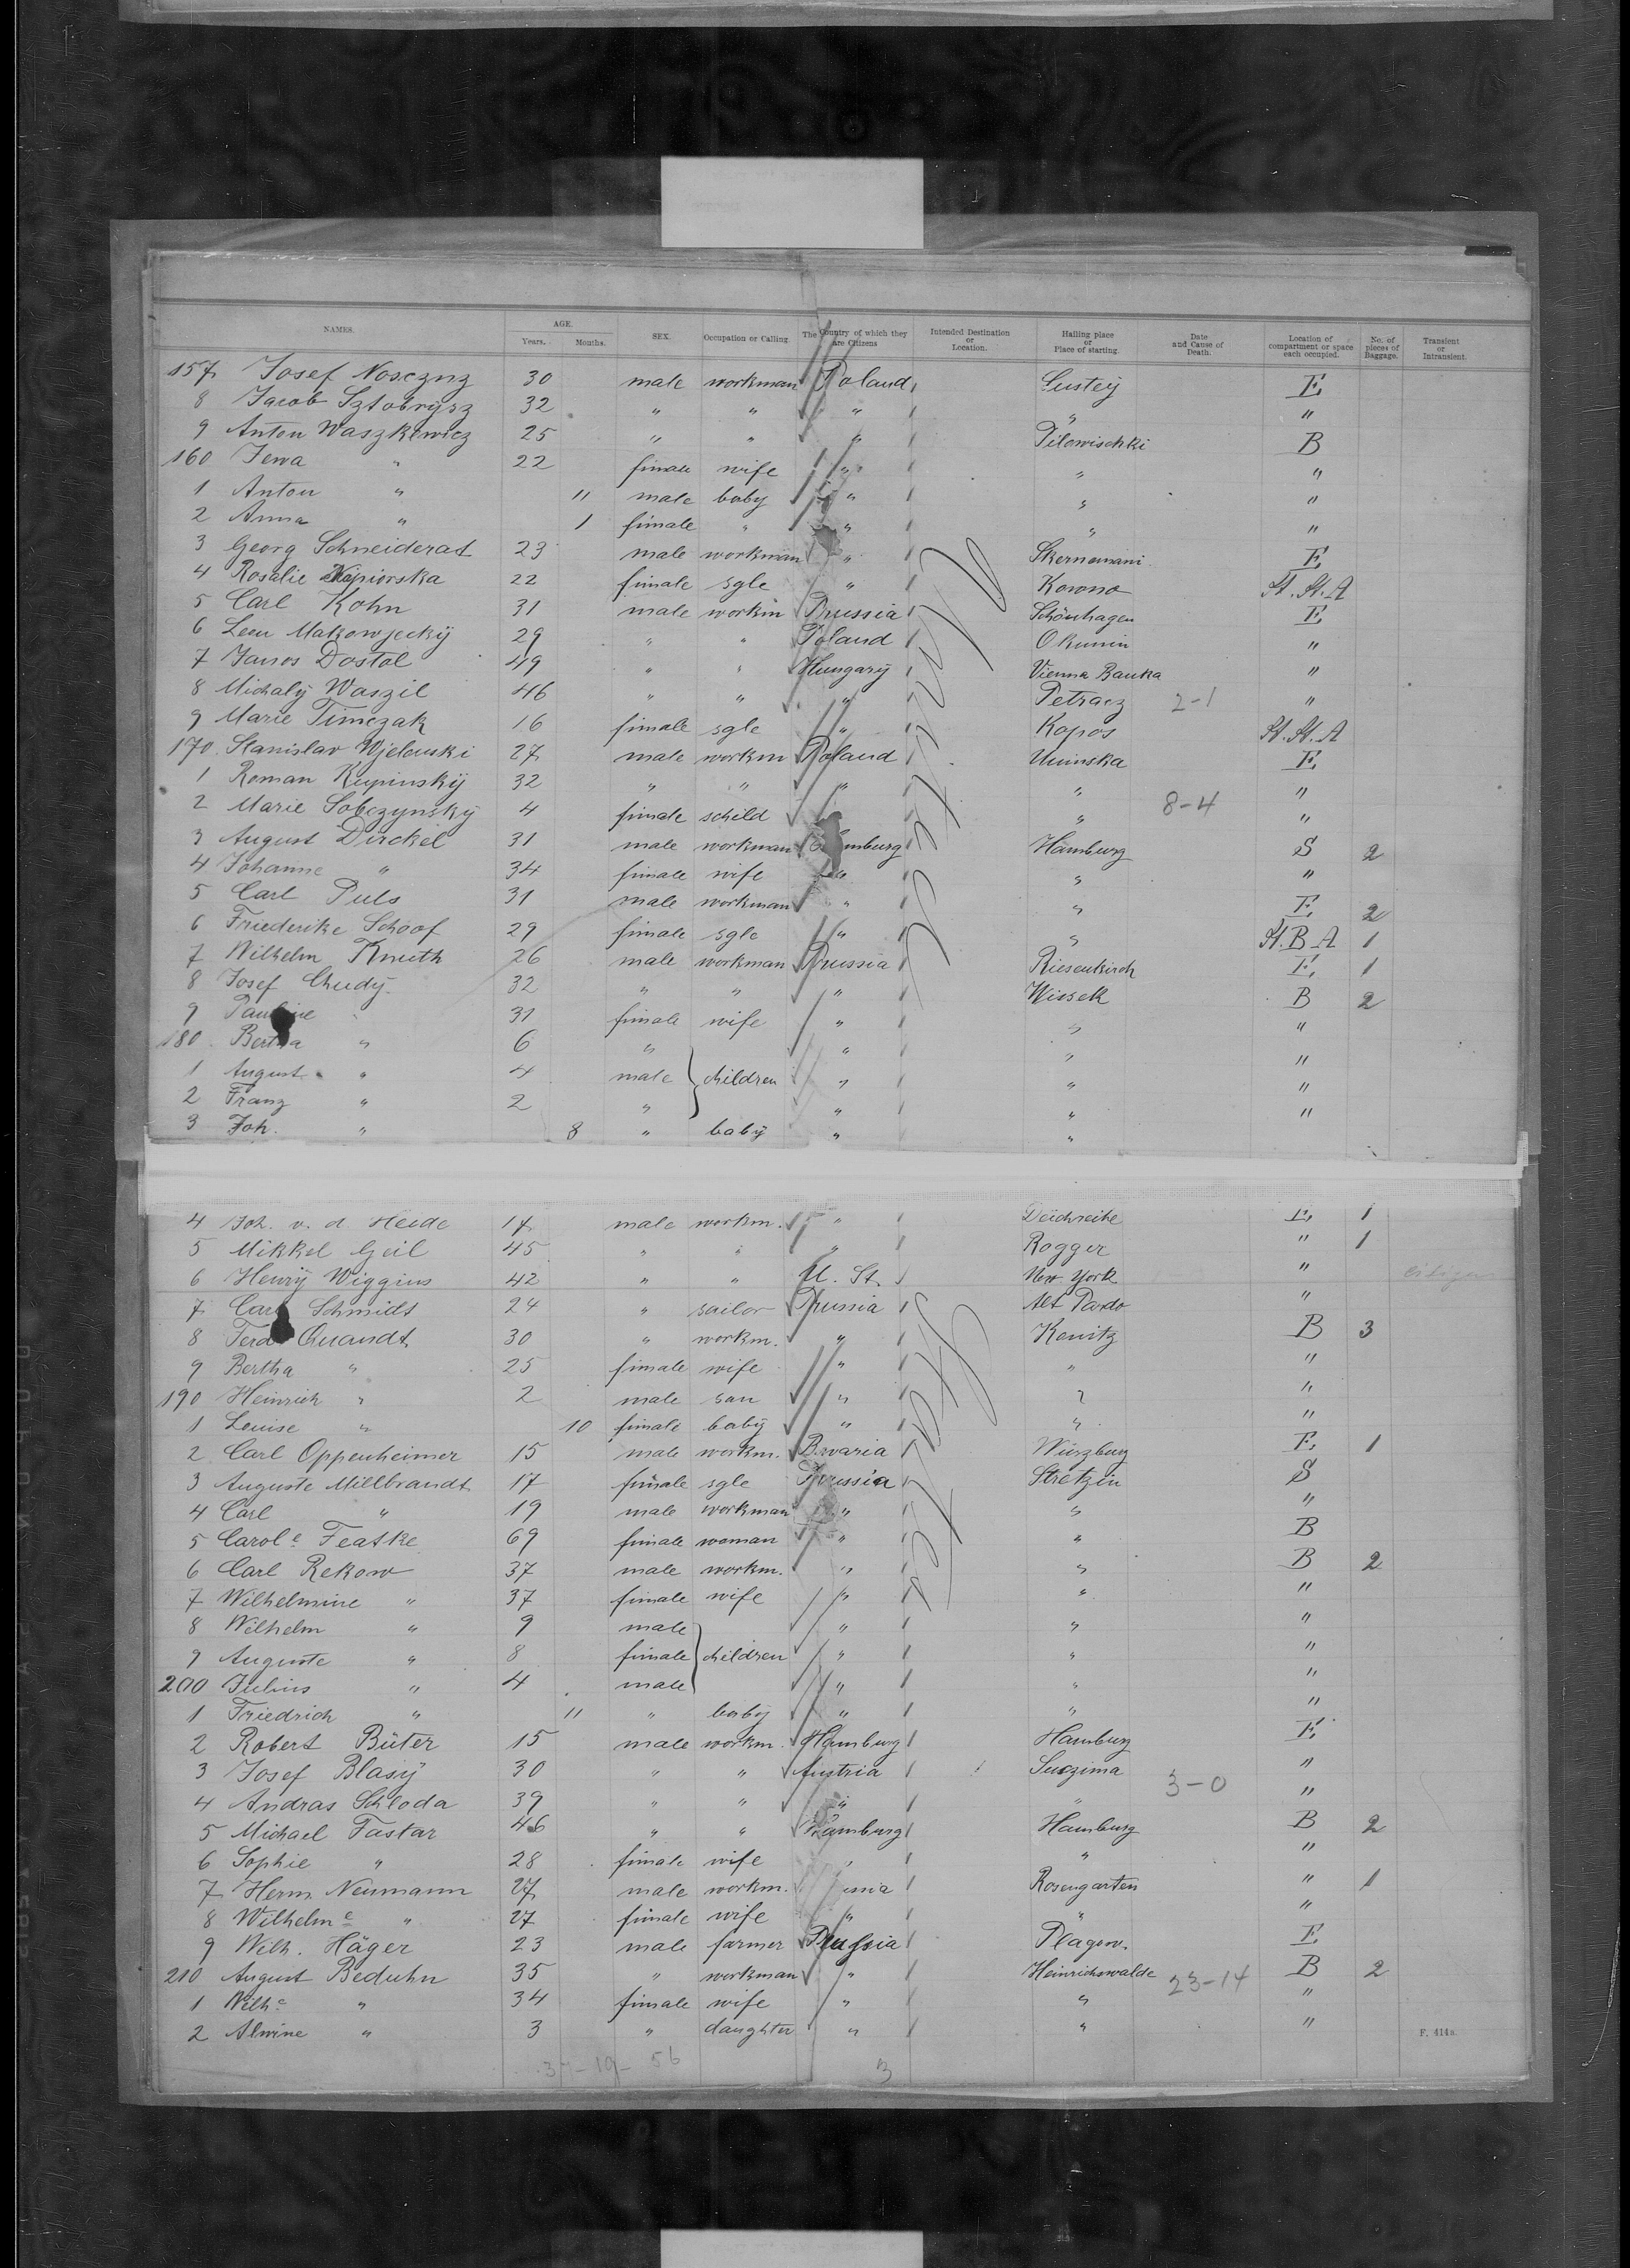 NAMES. AGE. SEX. Occupation or Calling. The Country of which they are Citizens Intended Destination or Location. Hailing place or Place of starting. Date and Cause of Death. Location of compartment or space each occupied. No. of pieces of Baggage. Transient or Intransient.
Years. Months.
157 Josef Nosczng 30 male workman Poland E
8 Jacob Sztobrysz 32 " " " " "
9 Anton Waszkewicz 25 " " " Pilowischki B
160 Jewa " 22 fimale wife " " "
1 Anton " 11 male baby " " "
2 Anna " 1 fimale " " " "
3 Georg Schneiderat 23 male workman " Skernemani E
4 Rosalie 22 fimale sgle " Kowno St. St. A
5 Carl Kohn 31 male workm Prussia Schönhagen E
6 Leon Makowjeckÿ 29 " " Poland Okunin "
7 Janos Dostal 49 " " Hungarÿ Vienna Banka "
8 Michalÿ Waszil 46 " " " Petracz 2-1 "
9 Marie Timczak 16 fimale sgle " Kapos St. St. A
170 Stanislav Wjelouski 27 male workm Poland Uninska E
1 Roman Kupinskÿ 32 " " " " "
2 Marie Sobczynskÿ 4 fimale schild " " 8-4 "
3 August Dirckel 31 male workman Hamburg Hamburg S 2
4 Johanne " 34 fimale wife " " "
5 Carl Puls 31 male workman " " E 2
6 Friederike Schoof 29 fimale sgle " " St. B A 1
7 Wilhelm Knuth 26 male workman Prussia Riesenkirch E 1
8 Josef Chudÿ 32 " " " Wissek B 2
9 Pauline " 31 fimale wife " " "
180 Bertha " 6 " " " "
1 August " 4 male children " " "
2 Franz " 2 " " " "
3 Joh. " 8 " baby " "
4 Joh. v. d Heide 17 male workm. " Deichreihe E 1
5 Mikkel Geil 45 " " " Rogger " 1
6 Henrÿ Wiggins 42 " " U. St. New York " citizen
7 Carl Schmidt 24 " sailor Prussia Alt Pardo "
8 Ferd Quandt 30 " workm. " Kenitz B 3
9 Bertha " 25 fimale wife " " "
190 Heinrich " 2 male son " " "
1 Louise " 10 fimale babÿ " " "
2 Carl Oppenheimer 15 male workm. Bavaria Würzburg E 1
3 Auguste Millbrandt 17 fimale sgle Prussia Stretzin S
4 Carl " 19 male workman " " "
5 Carole Featke 69 fimale woman " " B
6 Carl Rekow 37 male workm. " " B 2
7 Wilhelmine " 37 fimale wife " " "
8 Wilhelm " 9 male " " "
9 Auguste " 8 fimale children " " "
200 Julius " 4 male " " "
1 Friedrich " 11 " baby " " "
2 Robert Büter 15 male workm. Hamburg Hamburg E
3 Josef Blasÿ 30 " " Austria Suczima "
4 Andras Schloda 39 " " " " 3-0 "
5 Michael Fastar 46 " " Hamburg Hamburg B 2
6 Sophie " 28 fimale wife " " "
7 Herm Neumann 27 male workm. ussia Rosengarten " 1
8 Wilhelme " 27 fimale wife " " "
9 Wilh. Häger 23 male farmer Prussia Plagow. E
210 August Beduhn 35 " workman " Heinrichswalde 23-14 B 2
1 Wilhe " 34 fimale wife " " "
2 Alwine " 3 " daughter " " "
F. 414a.
37-19-56 3